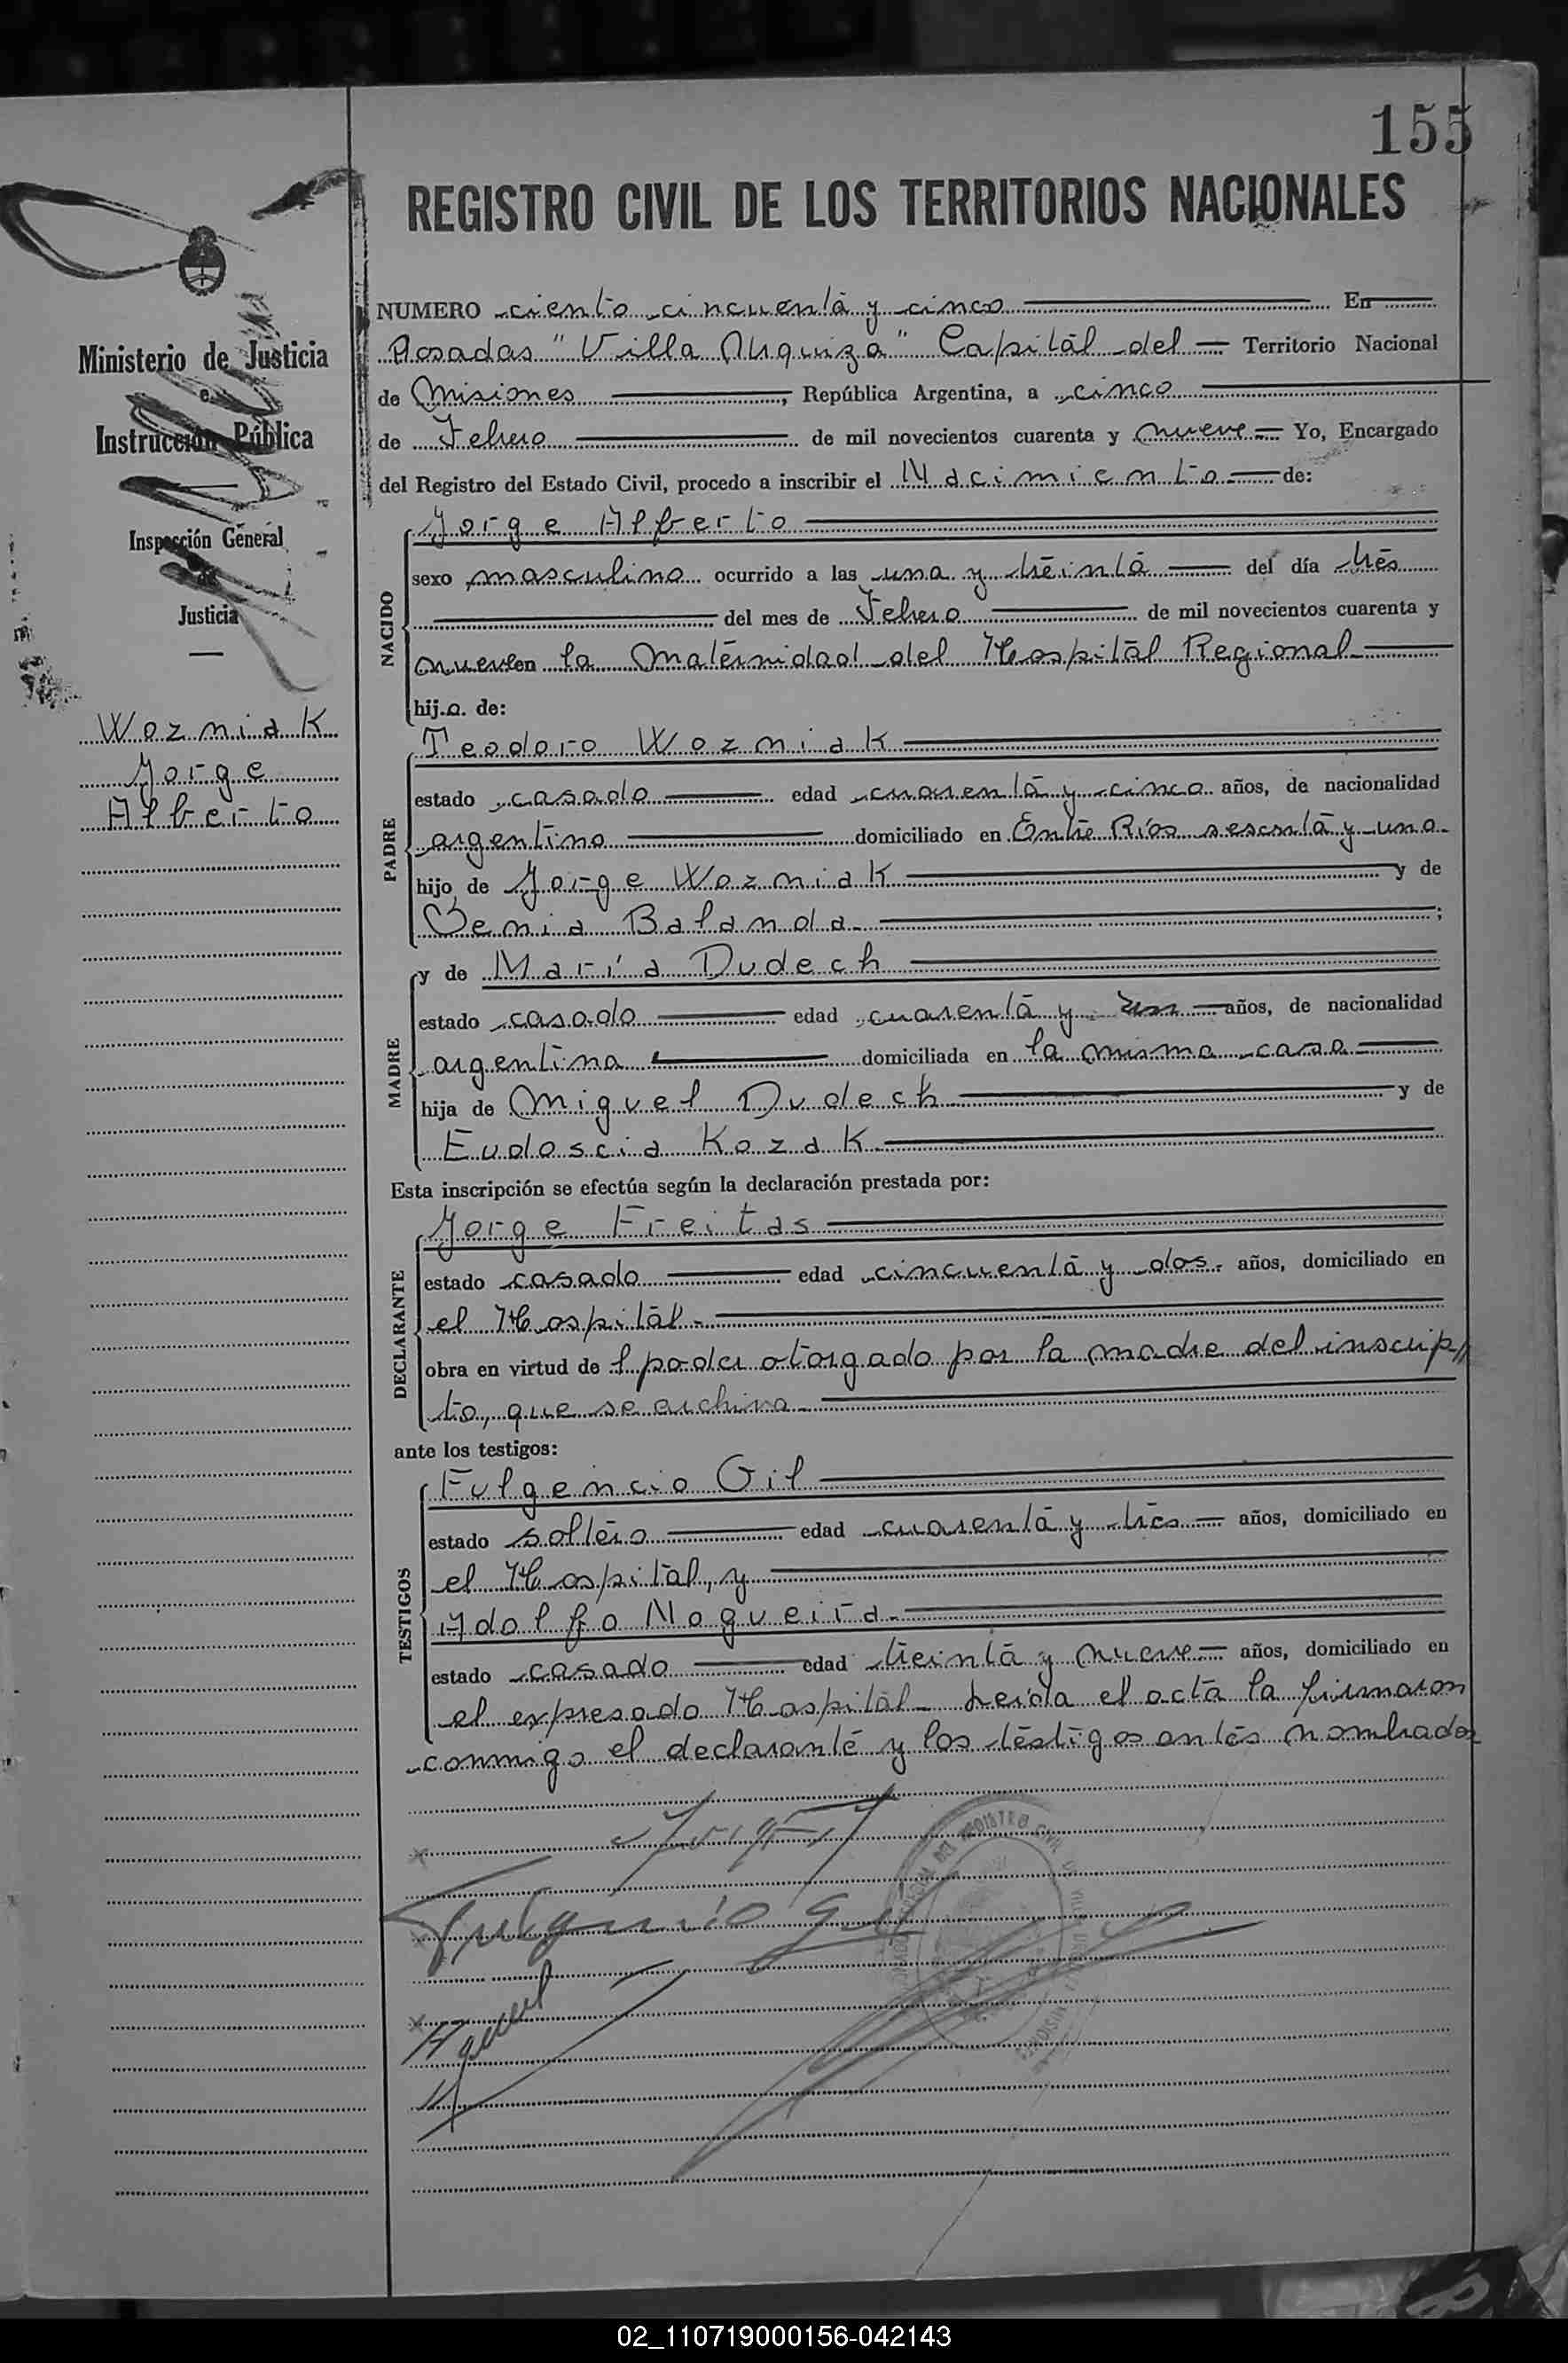 155
REGISTRO CIVIL DE LOS TERRITORIOS NACIONALES
Ministerio de Justicia
e
Instrucción Pública
Inspección General
de
Justicia
Wozniak
Jorge
Alberto
NUMERO ciento cincuenta y cinco En
Posadas "Villa Urquiza" Capital del Territorio Nacional
de Misiones, República Argentina, a cinco
de Febrero de mil novecientos cuarenta y nueve Yo, Encargado
del Registro del Estado Civil, procedo a inscribir el Nacimiento de:
NACIDO
Jorge Alberto
sexo masculino ocurrido a las una y treinta del día tres
del mes de Febrero de mil novecientos cuarenta y
nueve en la Maternidad del Hospital Regional
hij.o. de:
PADRE
Teodoro Wozniak
estado casado edad cuarenta y cinco años, de nacionalidad
argentino domiciliado en Entre Ríos sesenta y uno
hijo de Jorge Wozniak y de
Benia Balanda ;
MADRE
y de María Dudech
estado casada edad cuarenta y un años, de nacionalidad
argentina domiciliada en la misma casa
hija de Miguel Dudech y de
Eudoscia Kozak
Esta inscripción se efectúa según la declaración prestada por:
DECLARANTE
Jorge Freitas
estado casado edad cincuenta y dos años, domiciliado en
el Hospital
obra en virtud de l poder otorgado por la madre del inscrip//
to, que se archiva
ante los testigos:
TESTIGOS
Fulgencio Gil
estado soltero edad cuarenta y tres años, domiciliado en
el Hospital, y
Adolfo Nogueira
estado casado edad treinta y nueve años, domiciliado en
el expresado Hospital Leída el acta la firmaron
conmigo el declarante y los testigos antes nombrados
Fulgencio Gil
02_110719000156-042143